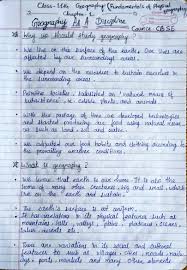 Class-11th Geography (Fundamentals of Physical Geography)
Chapter 1
Geography As A Discipline
Course CBSE
Why we should study geography?
We live on the surface of the earth. Our lives are affected by our surroundings
We depend on the resources to sustain ourselves in the surrounding areas.
Primitive societies subsisted on 'natural means of subsistence', i.e. edible plants and animals.
With the passage of time we developed technologies and started producing our food using natural resources such as land, soil and water.
We adjusted our food habits and clothing according to the prevailing weather conditions.
What is geography?
We know that earth is our home. It is also the home of many other creatures, big and small, which live on the earth and sustain.
The earth's surface is not uniform.
It has variations in its physical features such as mountains, hills, valleys, plains, plateaus, oceans, lakes, deserts etc.
There are variations in its social and cultural features too such as villages, cities, roads, railways, ports, markets and many other elements